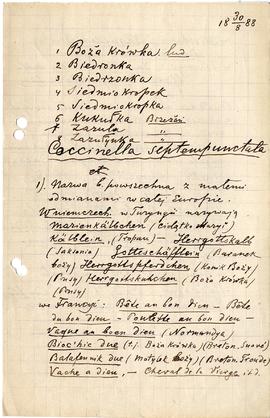 18 30/8 88
1 Boża Krówka lud
2 Biedronka
3 Biedrzonka
4 Siedmiokropek
5 Siedmiokropka
6 Kukułka Brzeziń
7 Zazula "
8 Zazulynka "
Coccinella septempunctata
1). Nazwa b. powszechna z małemi
odmianami w całej Europie.
W niemczech w Turyngii nazywają
Marienkälbchen (Cielątko Maryi)
Kätblein, (Tropau) — Herrgottskalb
(Saksonia) Gotteschäflein (Baranek
Boży) Herrgottspferdchen (Konik Boży)
(Prusy) Herrgottskühchen (Boża Krówka)
(Prusy)
we Francyi: Bête au bon dieu — Bête
du bon dieu — Poulette au bon dieu —
Vaque au boon dieu (Normandya)
Bioc'hic due (t.j. Boża Krówka) (Breton.
Balafennik due (Motylek Boży) (Breton.
Vache a dieu, — Cheval de la Vierge i t.d.